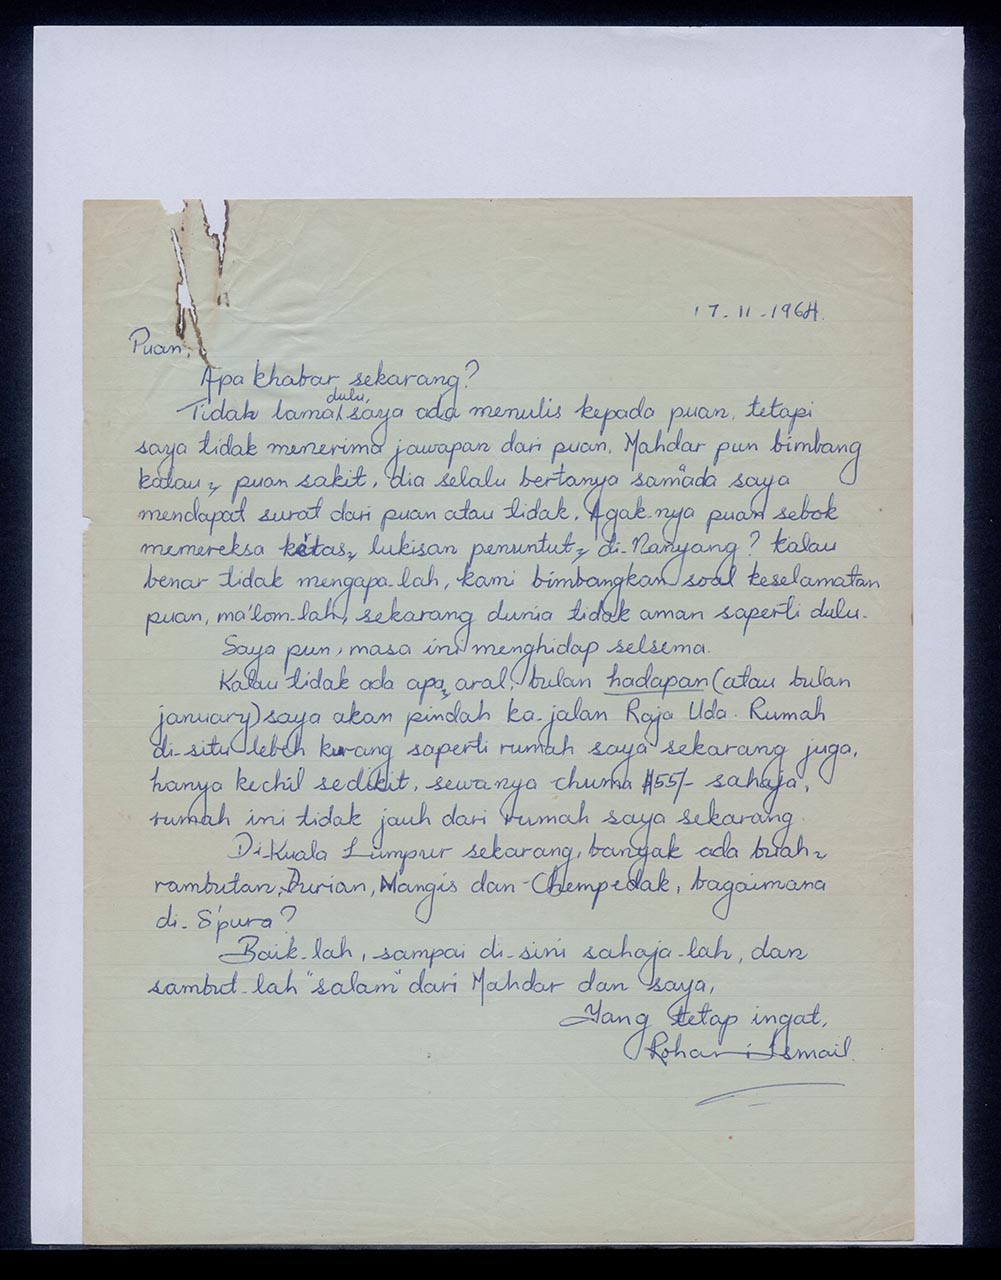 17-11-1964.
Puan,
Apa khabar sekarang?
Tidak lama dulu, saya ada menulis kepada puan, tetapi
saya tidak menerima jawapan dari puan, Mahdar pun bimbang
kalau2 puan sakit, dia selalu bertanya sama'ada saya
mendapat surat dari puan atau tidak. Agak-nya puan sebok
memereksa ketas2 lukisan penuntut2 di-Nanyang? Kalau
benar tidak mengapa-lah, kami bimbangkan soal keselamatan
puan, ma'lom-lah, sekarang dunia tidak aman saperti dulu.
Saya pun, masa ini menghidap selsema.
Kalau tidak ada apa2 aral, bulan hadapan (atau bulan
january) saya akan pindah ka-jalan Raja Uda. Rumah
di-situ lebeh kurang saperti rumah saya sekarang juga,
hanya kechil sedikit, sewanya chuma $55/- sahaja,
rumah ini tidak jauh dari rumah saya sekarang.
Di-Kuala Lumpur sekarang, banyak ada buah2
rambutan, Durian, Mangis dan Chempedak, bagaimana
di-S'pura?
Baik-lah, sampai di-sini sahaja-lah, dan
sambut-lah "salam" dari Mahdar dan saya,
Yang tetap ingat,
Rohani Ismail.